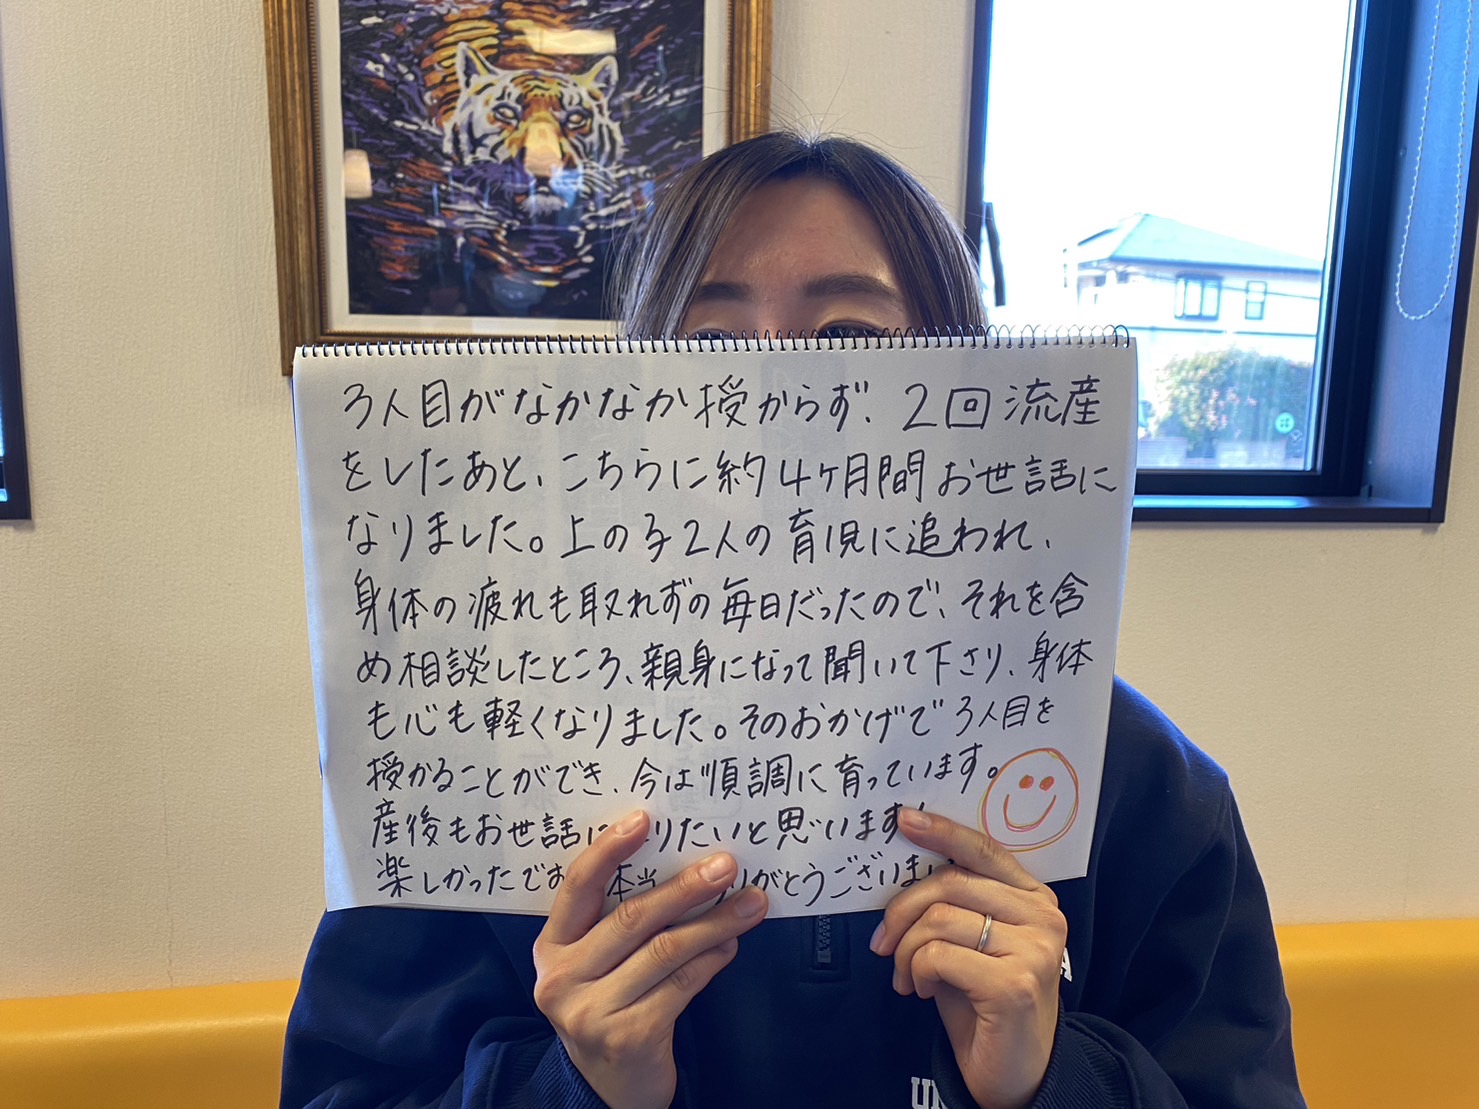 3人目がなかなか授からず、2回流産
をしたあと、こちらに約4ヶ月間お世話に
なりました。上の子2人の育児に追われ、
身体の疲れも取れずの毎日だったので、それを含
め相談したところ、親身になって聞いて下さり、身体
も心も軽くなりました。そのおかげで3人目を
授かることができ、今は順調に育っています。
産後もお世話に りたいと思います!
楽しかったです 本当 りがとうございまし
UN
A